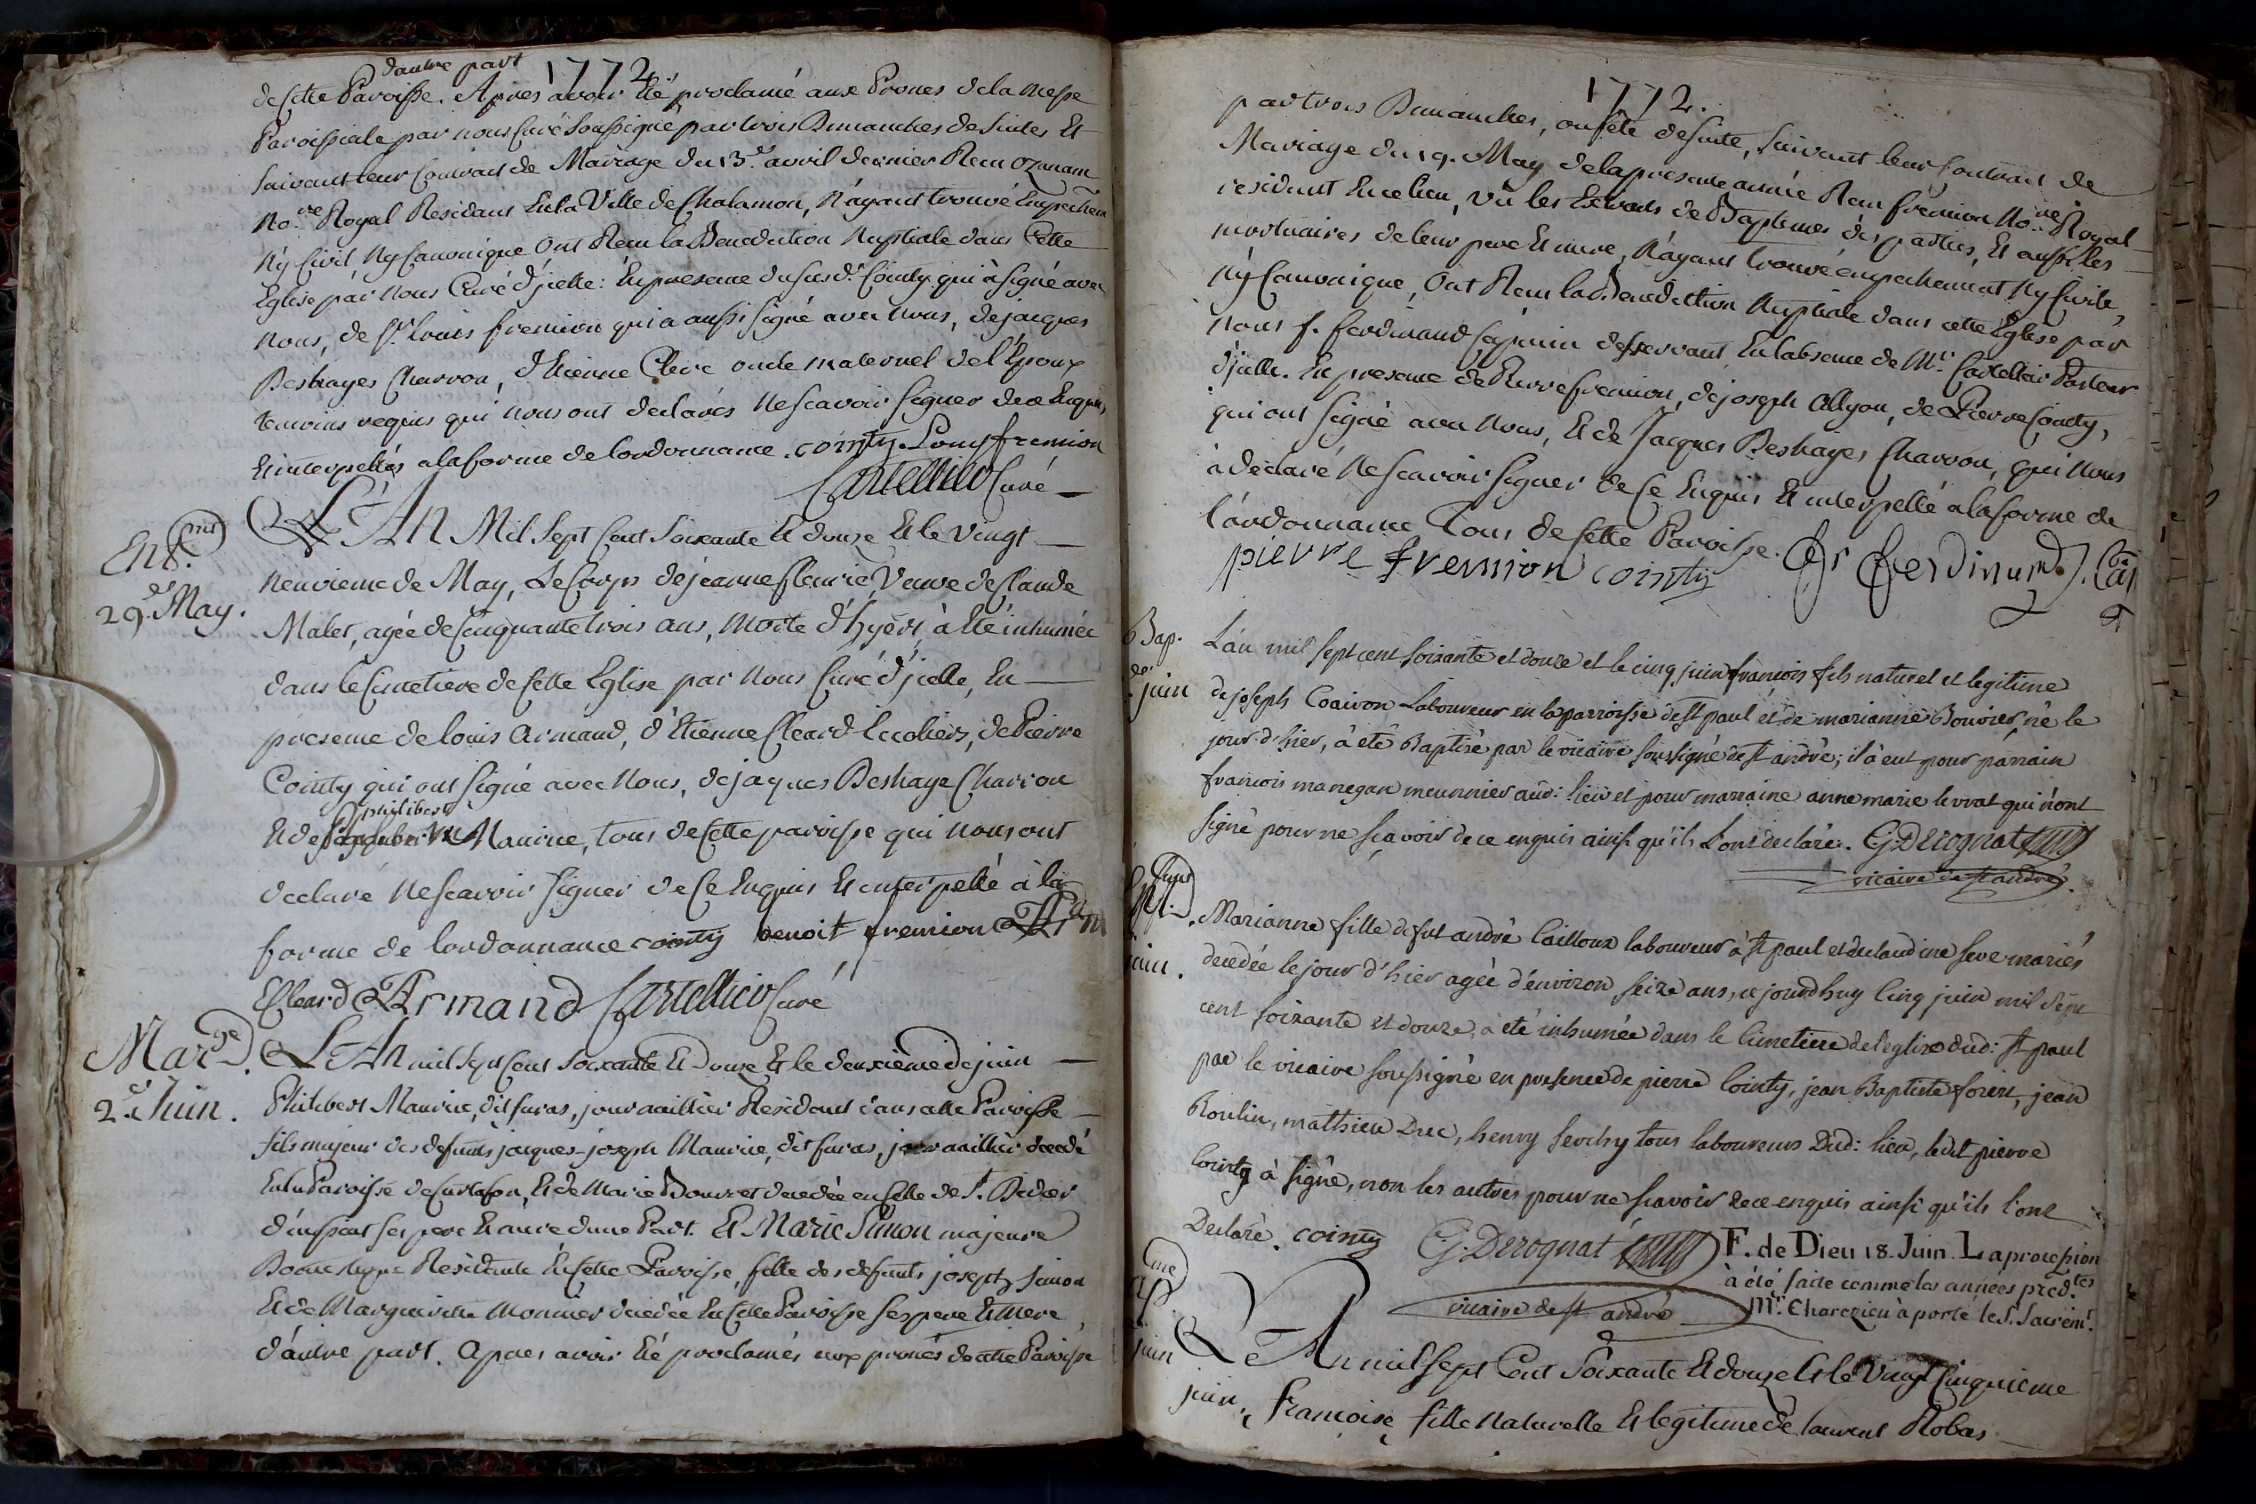 1772
d'autre part
de Cette Paroisse. Apres avoir Eté proclamé aux Prones de la Messe
Paroissiale par nous Curé Soussigné par trois Dimanches de Suites Et
Suivant leur Contrat de Mariage du 13.e avril dernier Recu Ozanam
No.re Royal Residant En la Ville de Chalamon, N'ayant trouvé Empechem
Ny Civil Ny Canonique Ont Recu la Benediction Nuptiale dans Cette
Eglise par Nous Curé d'jcelle: En presence du Susd.t Cointy qui à Signé avec
Nous, de Sr. Louis fremion qui a aussi Signé avec Nous, de jacques
Deshayes Charron, d'Etienne Clerc oncle maternel de l'Epoux
temoins requis qui nous ont declarés Ne Scavoir Signer de ce Enquis
Et interpellés a la forme de lordonnance. cointy Louis fremion
Castellier Curé
Ent.ment
29.e May.
L'An Mil Sept Cent Soixante Et douze Et le Vingt
Neuvieme de May, Le Corps de jeanne fleurie Veuve de Claude
Malet, agée de Cinquante trois ans, Morte d'hyers à Eté inhumée
dans le Cimetiere de Cette Eglise par Nous Curé d'jcelle, En
presence de louis Armand, d'Etienne Cleard Ecoliers, de Pierre
Cointy qui ont Signé avec Nous, de jaques Deshaye Charron
philibert
Et de Maurice, tous de Cette paroisse qui Nous ont
declaré Ne Scavoir Signer de Ce Enquis Et interpellé à la
forme de lordonnance cointy benoit fremion
Cleard Armand Castellier Curé
Mar.ge
2.e Juin.
L'An mil Sept Cent Soixante Et Douze Et le deuxième de juin
Philibert Maurice, dit furas, journaillier Residant dans cette Paroisse
fils majeur des defunts jacques-joseph Maurice, dit furas, journaillier decedé
En la Paroisse de Curtafon, Et de Marie Bouvret decedée en Celle de St. Didier
d'aussiat Ses pere Et mere d'une Part. Et Marie Simon majeure
Residante En Cette Paroisse, fille des defunts joseph Simon
Et de Marguerite Monnier decedée En Cette Paroisse Ses pere Et Mere
d'autre part. Apres avoir Eté proclamés aux prones de cette Paroisse
1772.
par trois Dimanches, ou fête de Suite, Suivant leur Contrat de
Mariage du 19. May de la presente année Recu fremion No.re Royal
residant En ce lieu, Vû les Extraits de Baptemes des parties, Et aussi les
mortuaires de leur pere Et mere, N'ayant trouvé empechement Ny Civile,
Ny Canonique, Ont Recu la Benediction Nuptiale dans cette Eglise par
Nous f. ferdinand Capucin desservant En l'absence de Mr. Castellier Pasteur
d'jcelle. En presence de Pierre fremion, de joseph Allyon, de Pierre Cointy,
qui ont Signé avec Nous, Et de Jacques Deshayes Charron, qui Nous
à declaré Ne Scavoir Signer de Ce Enquis Et interpellé a la forme de
l'ordonnance Tous de Cette Paroisse.
pierre fremion cointy fr ferdinand. Cap
Bap.
juin
L'an mil sept cent soixante et douze et le cinq juin francois fils naturel et legitime
de joseph Coairon Laboureur en la parroisse de St paul et de marianne Bouvier né le
jour d'hier, à eté Baptisé par le vicaire soussigné de st andré; il à eut pour parrain
francois manegan meunnier aud: lieu et pour marraine anne marie levrat qui n'ont
signé pour ne sçavoir de ce enquis ainsi qu'ils L'ont declaré. G. Derognat
vicaire de st andré.
juin.
Marianne fille de fut andré Cailloux laboureur à st paul et de claudine seve mariés
decedée le jour d'hier agée d'environ seize ans, ce jourdhuy cinq juin mil sept
cent soixante et douze, a eté inhumée dans le cimetiere de l'eglise dud: st paul
par le vicaire soussigné en presence de pierre Cointy, jean Baptiste forest, jean
Roulin, mathieu Druc, henry servhy tous laboureurs Dud: lieu, ledit pierre
cointy à signé, non les autres pour ne sçavoir de ce enquis ainsi qu'ils l'ont
Declaré. cointy G. Derognat
vicaire de st andré
F. de Dieu 18. Juin. La procession
à été faite comme les années préd.tes
Mr. Charezieu à porté le S. Sacrem.t
juin
L'An mil Sept Cent Soixante Et douze Et le Vingt Cinquieme
juin, francoise fille Naturelle Et legitime de laurent Robas